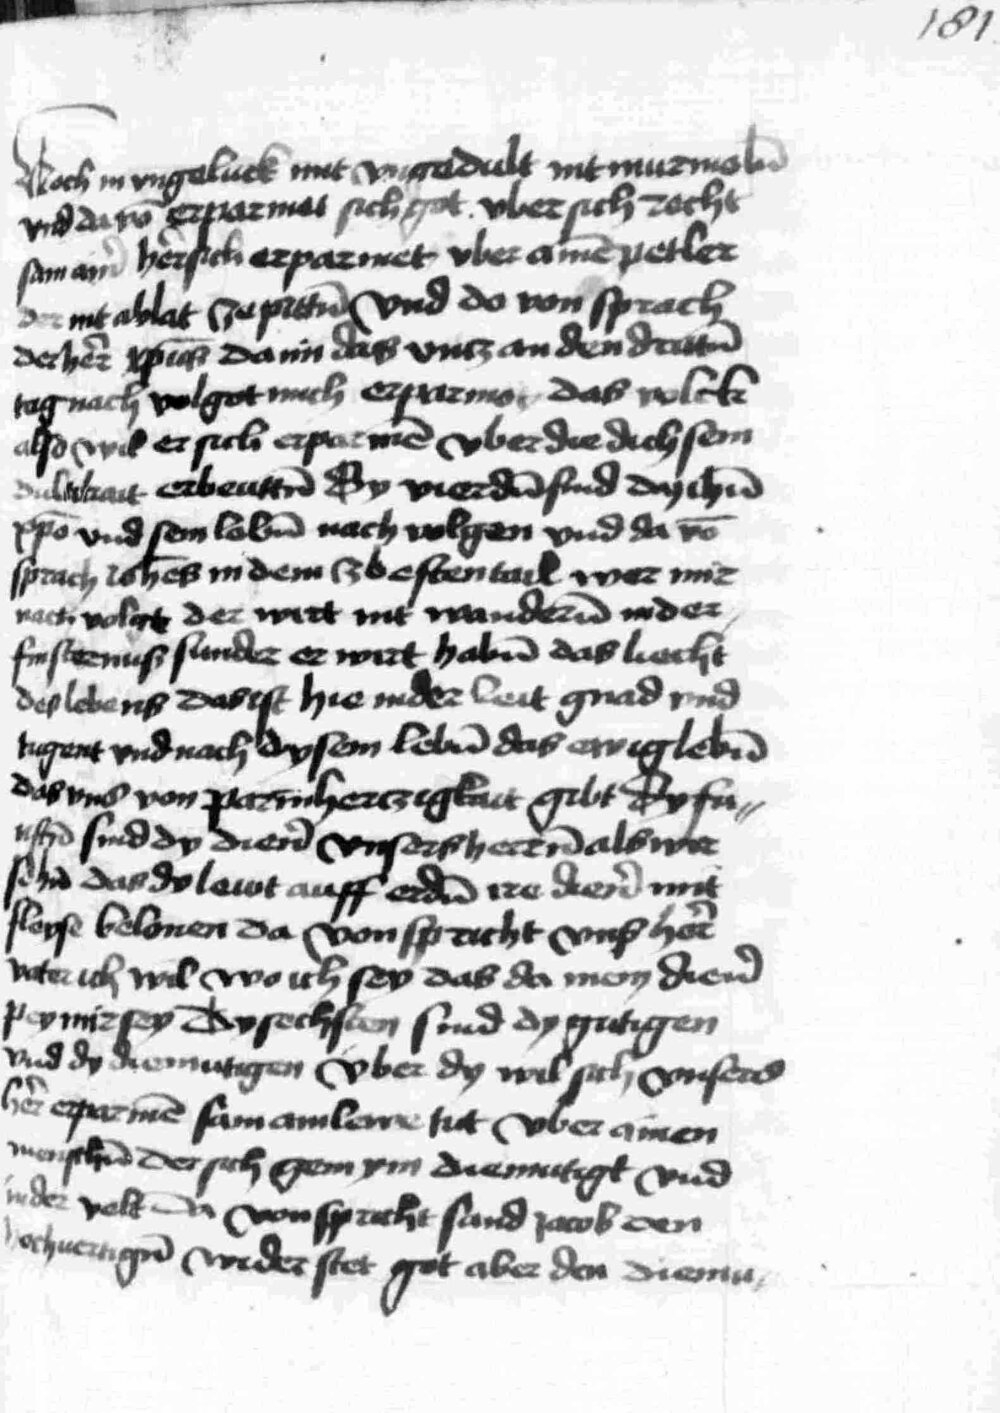 181
Noch in vngeluck mit vngedult nit murmelñ
vnd da võ erparmet sich got vber sich recht
sam ain h̄er sich erparmet vber ainē petler
der nit ablat ze pittñ Vnd do von sprach
der h̄er xp̄us da im das vntz an den drittñ
tag nach volgot mich erparmet das volck
also wil er sich erparmē vber die dich sein
dultikait erbeuttñ Dy vierdñ sind dy ihū
xp̄o vnd sein lebñ nach volgen vnd da võ
sprach ioh̄es in dem czbesten tail wer mir
nach volgt der wirt nit wanderñ in der
finsternuss sunder er wirt habñ das liecht
des lebens das ist hie in der zeit gnad vnd
tugent vnd nach dysem lebñ das ewig lebñ
das vns von parmhertzigkait gibt Dy fu„
nftñ sind dy dienē vnsers herrñ als wir
sehñ das dy lewt auff erdñ ire dienē mit
fleyse belonen da von spricht vnss h̄er
vater ich wil wo ich sey das da mein dienē
pey mir sey Dy sechsten sind dy gutigen
vnd dy diemutigen Vber dy wil sich vnsers
h̄er erparmē sam ain lewe tut vber ainen
menschñ der sich gem ym diemutigt vnd
in der velt Da von spricht sand iacob den
hochuertigñ wider stet got aber den diemu„